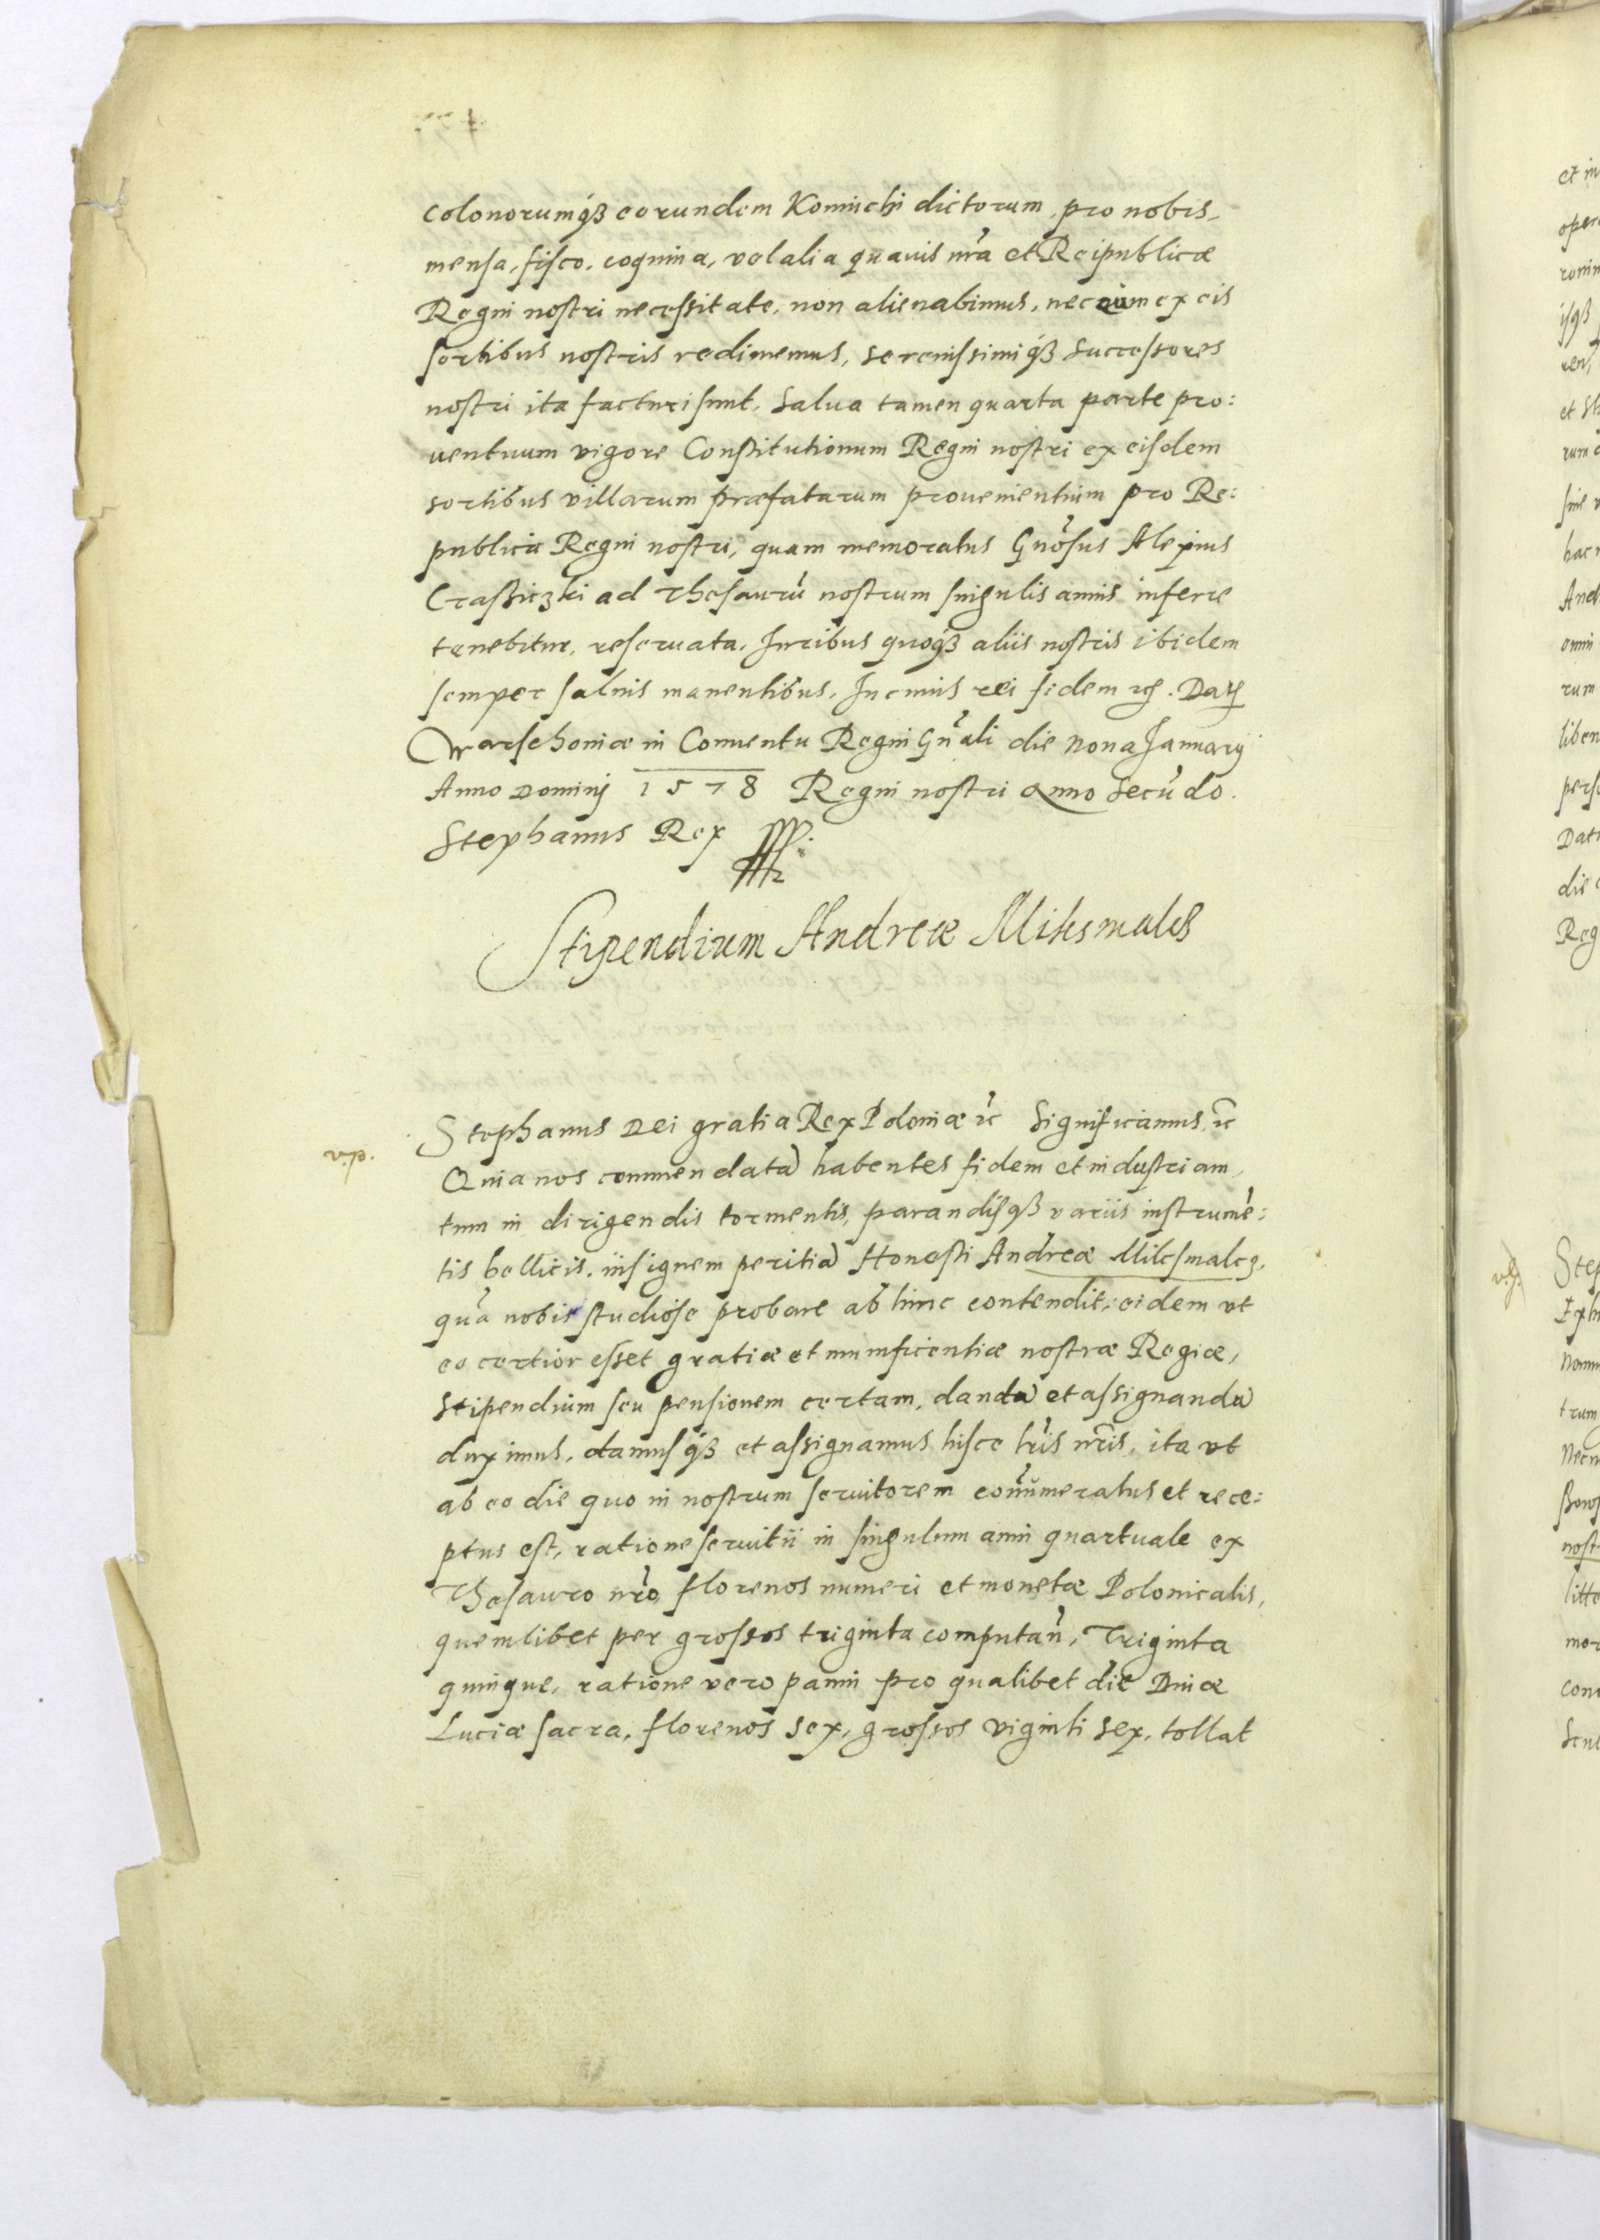 colonorumqʒ eorundem Komiichi dictorum, pro nobis,
mensa, fisco, coquina, vel alia quauis nra et Reipublicæ
Regni nostri necessitate, non alienabimus, nec eum ex eis
sortibus nostris redimemus, serenissimiqʒ Successores
nostri ita facturi sunt, Salua tamen quarta parte pro:
uentuum vigore Constitutionum Regni nostri ex eisdem
sortibus villarum præfatarum prouenientium pro Re:
publica Regni nostri, quam memoratus Gnosus Alexius
Crassiczki ad Thesaurũ nostrum singulis annis inferre
tenebitur, reseruata. Iuribus quoqʒ aliis nostris ibidem
semper saluis manentibus. In cuius rei fidem etc. Datũ
Warschouiæ in Conuentu Regni Gnali die Nona Januarij
Anno Dominj 1578 Regni nostri Anno Secũdo.
Stephanus Rex
Stipendium Andreæ Milesmales
Stephanus Dei gratia Rex Poloniæ etc Significamus etc
Quia nos commendatã habentes fidem et industriam,
tum in dirigendis tormentis, parandisqʒ variis instrumẽ:
tis bellicis, insignem peritiã Honesti Andreæ Milesmalcz,
quã nobis studiose probare ab hinc contendit, eidem vt
eo certior esset gratiæ et munificentiæ nostræ Regiæ,
Stipendium seu pensionem certam, dandã et assignandã
duximus, damusqʒ et assignamus hisce lris nris, ita vt
ab eo die quo in nostrum seruitorem connumeratus et rece:
ptus est, ratione seruitii in singulum anni quartuale ex
Thesauro nro, florenos numeri et monetæ Polonicalis,
quemlibet per grossos triginta computan, Triginta
quinque, ratione vero panni pro qualibet die Diuæ
Luciæ sacra, florenos sex, grossos viginti sex, tollat